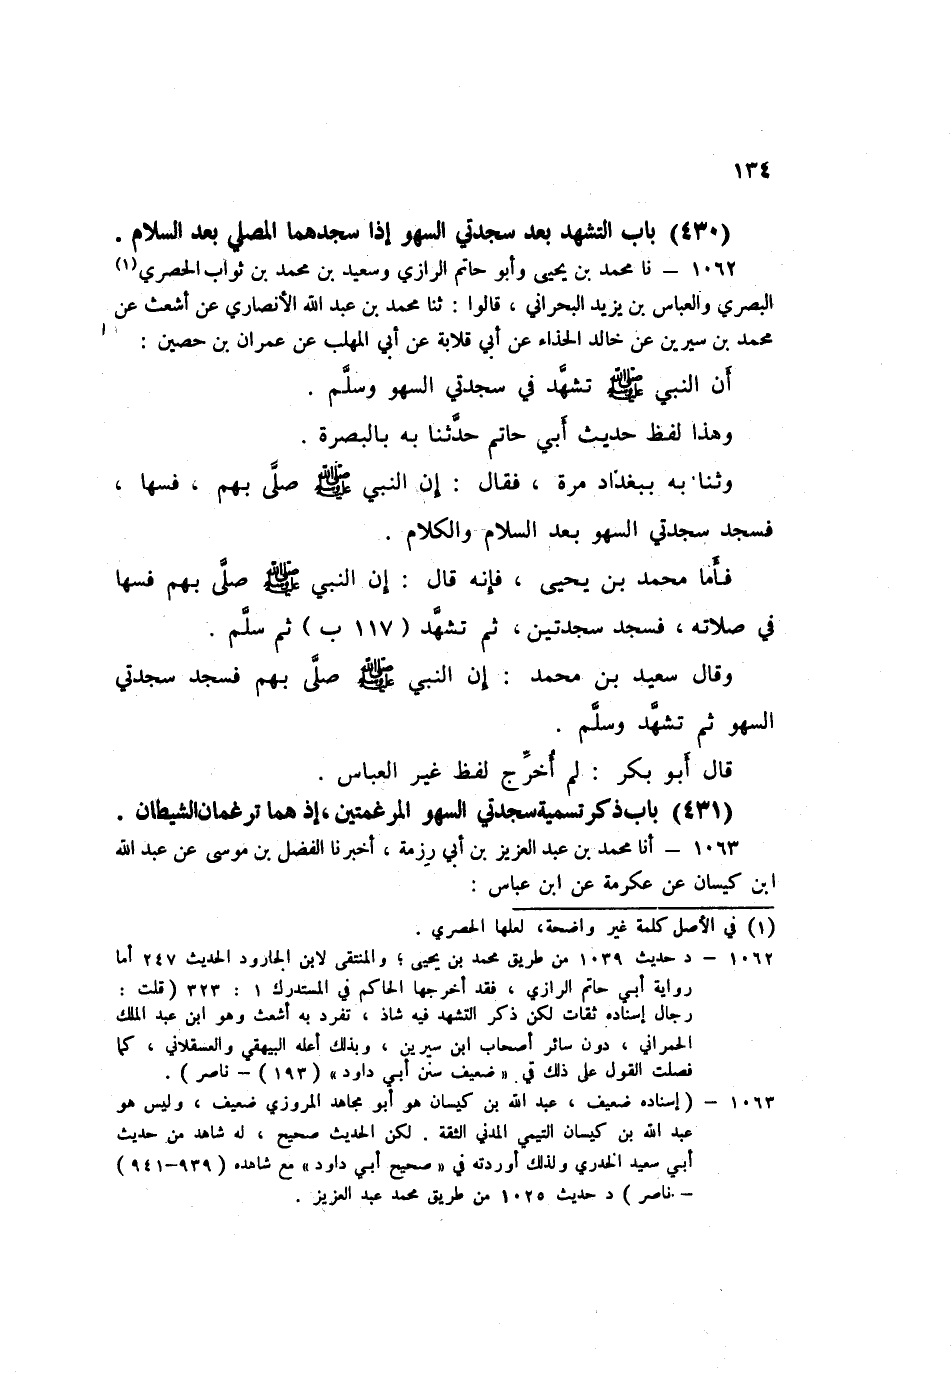 ١٣٤
(٤٣٠) باب التشهد بعد سجدتي السهو إذا سجدهما المصلي بعد السلام .
١٠٦٢ – نا محمد بن يحيى وأبو حاتم الرازي وسعيد بن محمد بن ثواب الحصري(١)
البصري والعباس بن يزيد البحراني ، قالوا : ثنا محمد بن عبد الله الأنصاري عن أشعث عن
محمد بن سيرين عن خالد الحذاء عن أبي قلابة عن أبي المهلب عن عمران بن حصين :
أن النبي ﷺ تشهَّد في سجدتي السهو وسلَّم .
وهذا لفظ حديث أبي حاتم حدَّثنا به بالبصرة .
وثنا به ببغداد مرة ، فقال : إن النبي ﷺ صلَّى بهم ، فسها ،
فسجد سجدتي السهو بعد السلام والكلام .
فأما محمد بن يحيى ، فإنه قال : إن النبي ﷺ صلَّى بهم فسها
في صلاته ، فسجد سجدتين ، ثم تشهَّد ( ١١٧ ب ) ثم سلَّم .
وقال سعيد بن محمد : إن النبي ﷺ صلَّى بهم فسجد سجدتي
السهو ثم تشهَّد وسلَّم .
قال أبو بكر : لم أُخرِّج لفظ غير العباس .
(٤٣١) باب ذكر تسمية سجدتي السهو المرغمتين ، إذ هما ترغمان الشيطان .
١٠٦٣ – أنا محمد بن عبد العزيز بن أبي رزمة ، أخبرنا الفضل بن موسى عن عبد الله
ابن كيسان عن عكرمة عن ابن عباس :
(١) في الأصل كلمة غير واضحة، لعلها الحصري .
١٠٦٢ – د حديث ١٠٣٩ من طريق محمد بن يحيى ؛ والمنتقى لابن الجارود الحديث ٢٤٧ أما
رواية أبي حاتم الرازي ، فقد أخرجها الحاكم في المستدرك ١ : ٣٢٣ (قلت :
رجال إسناده ثقات لكن ذكر التشهد فيه شاذ ، تفرد به أشعث وهو ابن عبد الملك
الحمراني ، دون سائر أصحاب ابن سيرين ، وبذلك أعله البيهقي والعسقلاني ، كما
فصلت القول على ذلك في « ضعيف سنن أبي داود » (١٩٣) – ناصر ) .
١٠٦٣ – (إسناده ضعيف ، عبد الله بن كيسان هو أبو مجاهد المروزي ضعيف ، وليس هو
عبد الله بن كيسان التيمي المدني الثقة . لكن الحديث صحيح ، له شاهد من حديث
أبي سعيد الخدري ولذلك أوردته في « صحيح أبي داود » مع شاهده (٩٣٩–٩٤١)
– ناصر ) د حديث ١٠٢٥ من طريق محمد عبد العزيز .